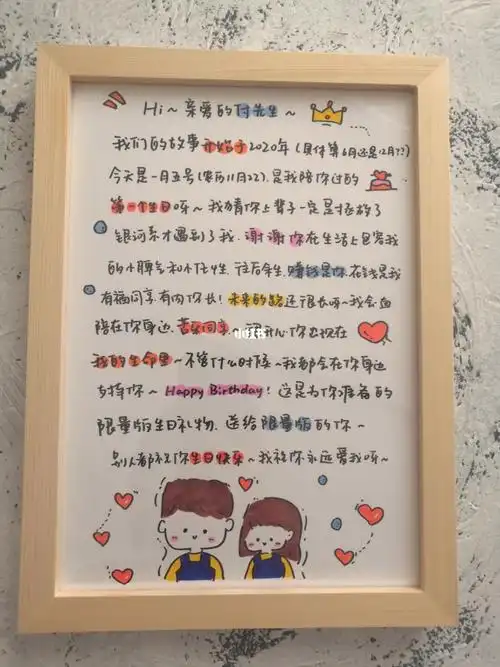 Hi~ 亲爱的付先生~
我们的故事开始于2020年(具体算6月还是12月??)
今天是一月五号(农历11月22).是我陪你过的
第一个生日呀~我猜你上辈子一定是拯救了
银河系才遇到了我.谢谢你在生活上包容我
的小脾气和小任性.往后余生.赚钱是你.花钱是我
有福同享.有肉你长!未来的路还很长呀~我会血
陪在你身边.苦乐同享.开心你出现在
小红书
我的生命里~不管什么时候~我都会在你身边
支持你~Happy Birthday!这是为你准备的
限量版生日礼物.送给限量版的你~
别人都祝你生日快乐~我祝你永远爱我呀~